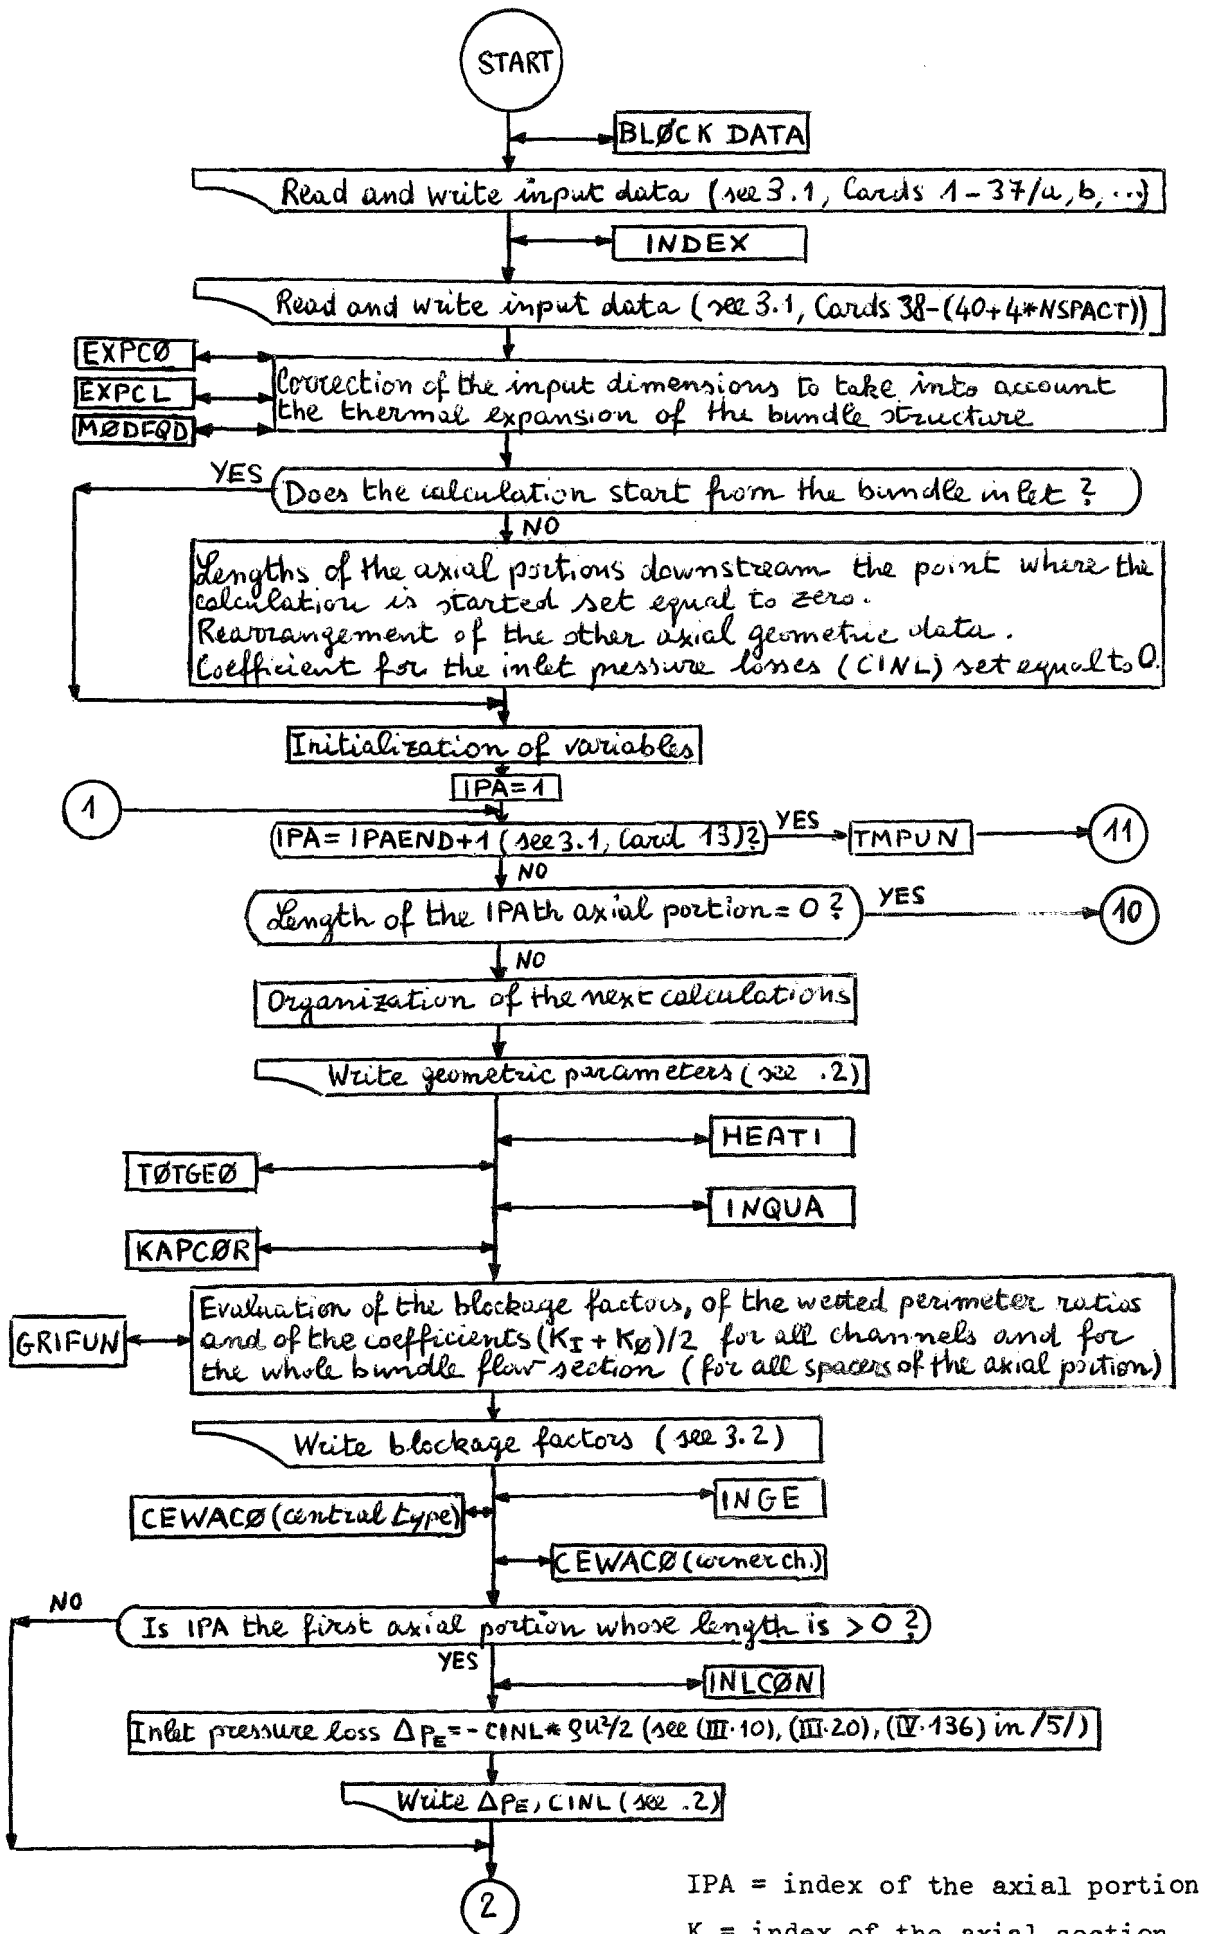 START
BLØCK DATA
Read and write input data (see 3.1, Cards 1-37/a, b, ...)
INDEX
Read and write input data (see 3.1, Cards 38-(40+4*NSPACT))
EXPCØ
EXPCL
MØDFQD
Correction of the input dimensions to take into account
the thermal expansion of the bundle structure
YES
Does the calculation start from the bundle inlet ?
NO
Lengths of the axial portions downstream the point where the
calculation is started set equal to zero.
Rearrangement of the other axial geometric data.
Coefficient for the inlet pressure losses (CINL) set equal to 0.
Initialization of variables
IPA=1
1
IPA= IPAEND+1 (see 3.1, Card 13)?
YES
TMPUN
11
NO
Length of the IPAth axial portion = 0 ?
YES
10
NO
Organization of the next calculations
Write geometric parameters (see .2)
HEATI
TØTGEØ
INQUA
KAPCØR
GRIFUN
Evaluation of the blockage factors, of the wetted perimeter ratios
and of the coefficients (K_I + K_Ø)/2 for all channels and for
the whole bundle flow section (for all spacers of the axial portion)
Write blockage factors (see 3.2)
INGE
CEWACØ (central type)
CEWACØ (corner ch.)
NO
Is IPA the first axial portion whose length is > 0 ?
YES
INLCØN
Inlet pressure loss Δp_E = - CINL * ρu²/2 (see (III·10), (III·20), (IV·136) in /5/)
Write Δp_E, CINL (see .2)
2
IPA = index of the axial portion
K = index of the axial section